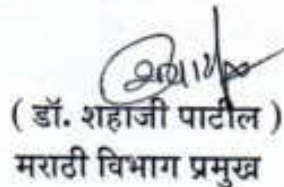 ( डॉ. शहाजी पाटील )
मराठी विभाग प्रमुख